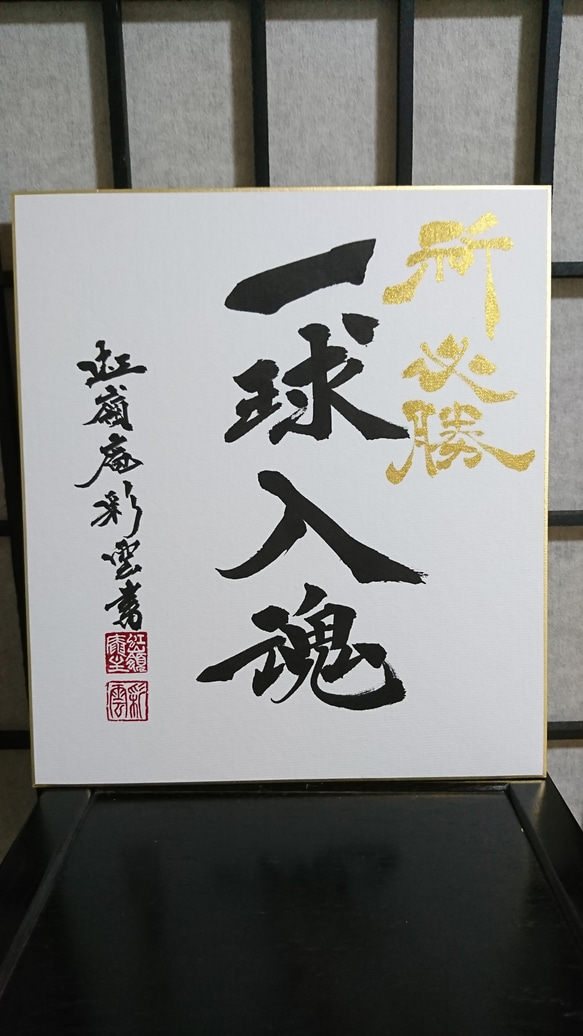 祈必勝
一球入魂
虹嶺庵彩雲書
虹嶺庵主
彩雲